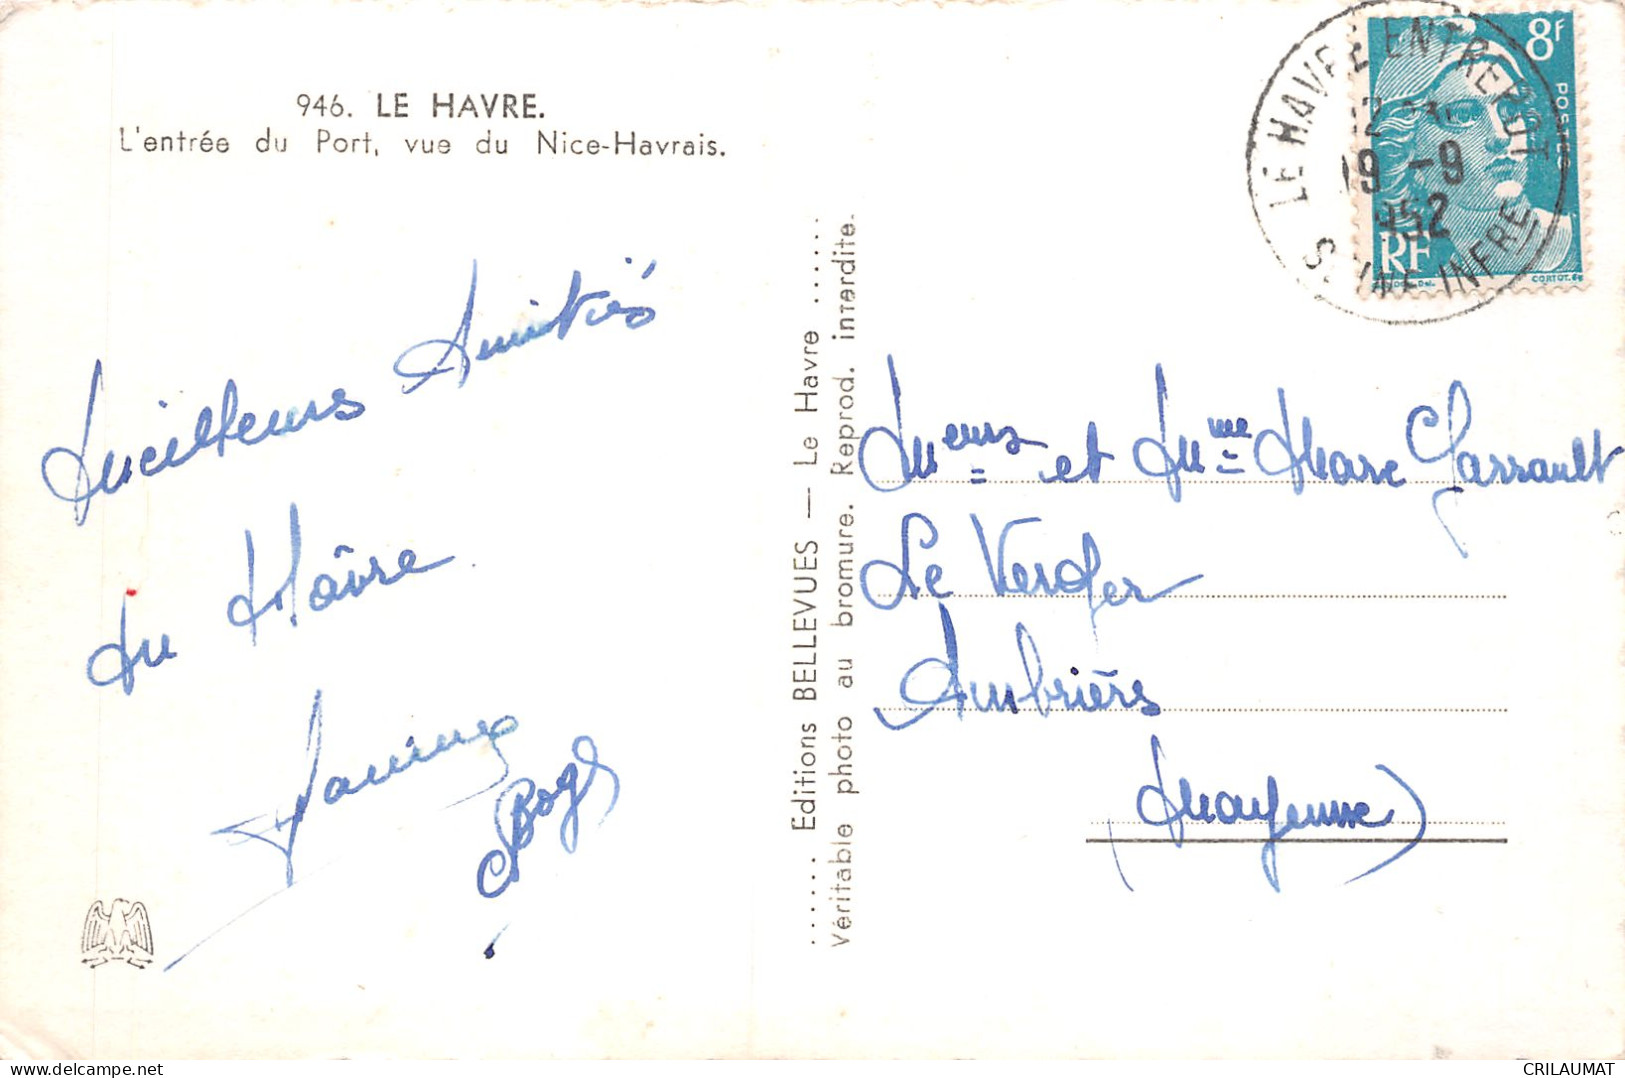 946. LE HAVRE.
L'entrée du Port, vue du Nice-Havrais.
Meilleurs Amitiés
du Hâvre
Janine
...... Editions BELLEVUES — Le Havre ......
Véritable photo au bromure. Reprod. interdite.
8F
POSTES
RF
CORTOT.
LE HAVRE ENTREPOT
19 -9
1952
SEINE INFRE
Mr et Mme Marc Garrault
Le Verger
Ambrières
(Mayenne)
CRILAUMAT